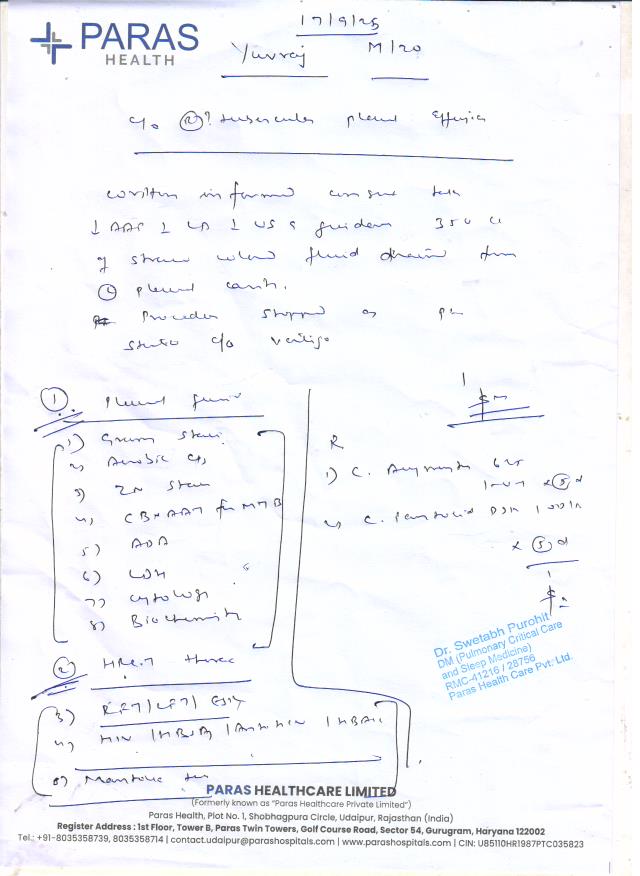 17/9/25
PARAS
HEALTH
Yuvraj M/20
c/o (R)? tubercular pleural effusion
written informed consent taken
↓ AAP ↓ LA ↓ USG guidance 350 cc
of straw colored fluid drained from
pleural cavity.
Procedure stopped as
c/o vertigo
① Pleural fluid
1) Gram stain
2) Aerobic C/S
3) ZN stain
4) CBNAAT for MTB
5) ADA
6) LDH
7) Cytology
8) Biochemistry
② HRCT thorax
3) RFT/LFT/ESR
4) HIV / HBsAg / Anti HCV /
5) Mantoux test
R
1) C. Augmentin 625
1-0-1 x ⑤ d
2) C. Pantocid DSR
x ⑤ d
Dr. Swetabh Purohit
DM (Pulmonary Critical Care
and Sleep Medicine)
RMC-41216 / 28756
Paras Health Care Pvt. Ltd.
PARAS HEALTHCARE LIMITED
(Formerly known as "Paras Healthcare Private Limited")
Paras Health, Plot No. 1, Shobhagpura Circle, Udaipur, Rajasthan (India)
Register Address : 1st Floor, Tower B, Paras Twin Towers, Golf Course Road, Sector 54, Gurugram, Haryana 122002
Tel.: +91-8035358739, 8035358714 | contact.udaipur@parashospitals.com | www.parashospitals.com | CIN: U85110HR1987PTC035823